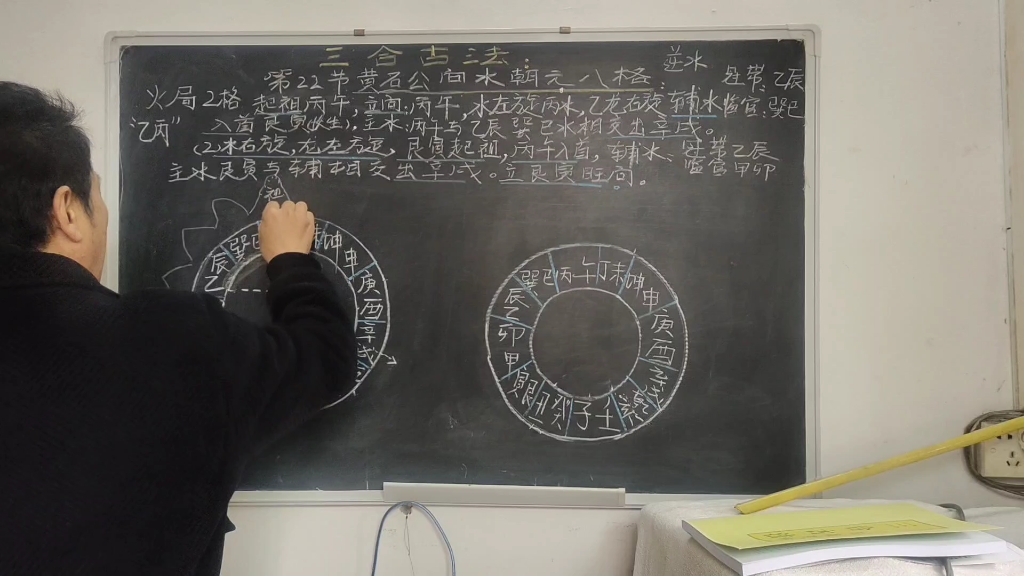 三合古法:
第22节黄石公向水朝元八格. 逆水
火局2格 起祖丙午,立向:丙午,水左旋丙水,乙龙右旋 辅水临官:巽巳 冠带:乙辰
"乙丙" 入首艮寅(长生).主水:丙午与乙辰巽巳水相交出辛戌。
(2)水右旋,龙左旋,艮寅起祖,丙午入首,辅水、冠带乙辰 临官甲卯
主水艮寅与辅相交出辛戌。立艮寅旺向。
乙 辰 巽 坤 申 庚 酉 辛 戌
巽 巳 丙 午 丁 未 坤 申 庚 酉 辛
壬 子 癸 丑 艮 寅 甲 卯 乙 辰